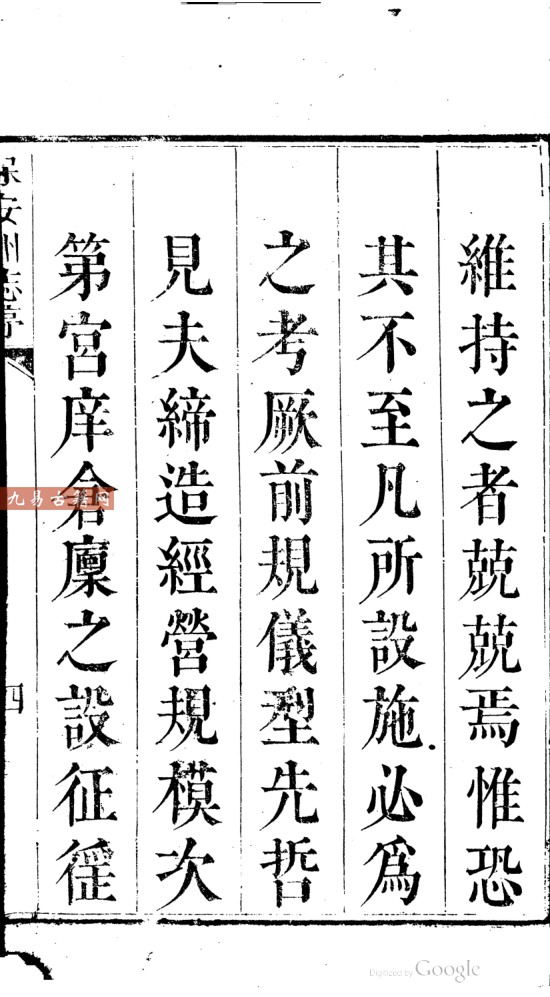 維持之者兢兢焉惟恐
其不至凡所設施必爲
之考厥前規儀型先哲
見夫締造經營規模次
第宮庠倉廩之設征徭
保安州志序
四
九易古籍网
Digitized by Google